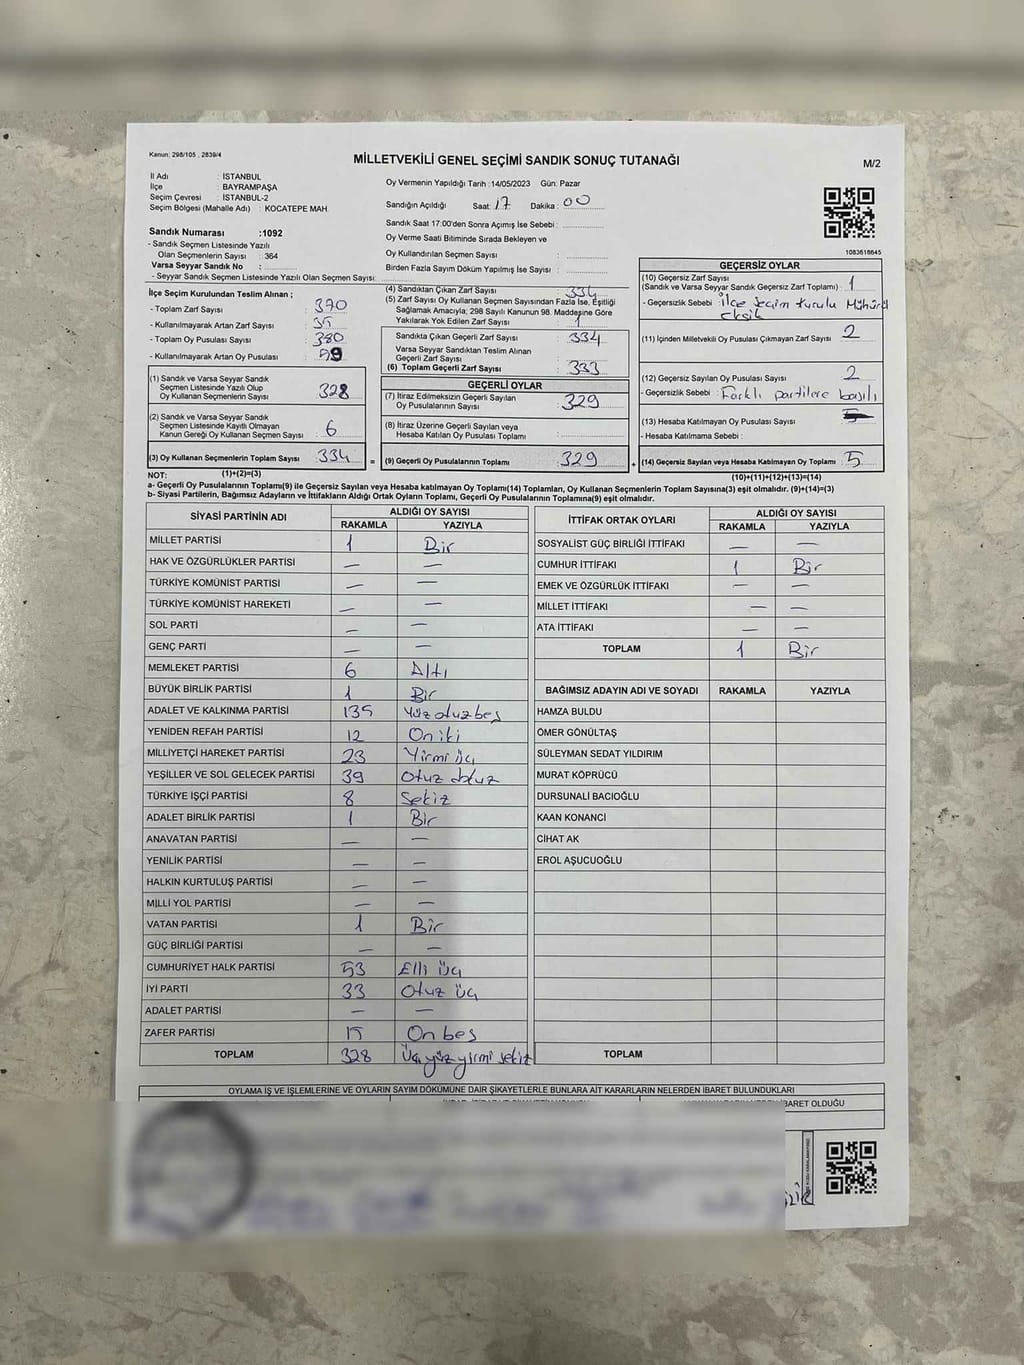 Kanun: 298/105 , 2839/4
MİLLETVEKİLİ GENEL SEÇİMİ SANDIK SONUÇ TUTANAĞI
M/2
İl Adı : İSTANBUL
İlçe : BAYRAMPAŞA
Seçim Çevresi : İSTANBUL-2
Seçim Bölgesi (Mahalle Adı) : KOCATEPE MAH.
Sandık Numarası :1092
- Sandık Seçmen Listesinde Yazılı
Olan Seçmenlerin Sayısı : 364
Varsa Seyyar Sandık No :
- Seyyar Sandık Seçmen Listesinde Yazılı Olan Seçmen Sayısı:
Oy Vermenin Yapıldığı Tarih :14/05/2023 Gün: Pazar
Sandığın Açıldığı Saat: 17 Dakika : 00
Sandık Saat 17.00'den Sonra Açımış İse Sebebi :
Oy Verme Saati Bitiminde Sırada Bekleyen ve
Oy Kullandırılan Seçmen Sayısı :
Birden Fazla Sayım Döküm Yapılmış İse Sayısı :
1083618645
İlçe Seçim Kurulundan Teslim Alınan ;
- Toplam Zarf Sayısı : 370
- Kullanılmayarak Artan Zarf Sayısı : 35
- Toplam Oy Pusulası Sayısı : 380
- Kullanılmayarak Artan Oy Pusulası :
(1) Sandık ve Varsa Seyyar Sandık
Seçmen Listesinde Yazılı Olup
Oy Kullanan Seçmenlerin Sayısı : 328
(2) Sandık ve Varsa Seyyar Sandık
Seçmen Listesinde Kayıtlı Olmayan
Kanun Gereği Oy Kullanan Seçmen Sayısı : 6
(3) Oy Kullanan Seçmenlerin Toplam Sayısı : 334 =
(1)+(2)=(3)
(4) Sandıktan Çıkan Zarf Sayısı : 334
(5) Zarf Sayısı Oy Kullanan Seçmen Sayısından Fazla İse, Eşitliği
Sağlamak Amacıyla; 298 Sayılı Kanunun 98. Maddesine Göre
Yakılarak Yok Edilen Zarf Sayısı : 1
Sandıkta Çıkan Geçerli Zarf Sayısı : 334
Varsa Seyyar Sandıktan Teslim Alınan
Geçerli Zarf Sayısı :
(6) Toplam Geçerli Zarf Sayısı : 333
GEÇERLİ OYLAR
(7) İtiraz Edilmeksizin Geçerli Sayılan
Oy Pusulalarının Sayısı : 329
(8) İtiraz Üzerine Geçerli Sayılan veya
Hesaba Katılan Oy Pusulası Toplamı :
(9) Geçerli Oy Pusulalarının Toplamı : 329 +
GEÇERSİZ OYLAR
(10) Geçersiz Zarf Sayısı
(Sandık ve Varsa Seyyar Sandık Geçersiz Zarf Toplamı) : 1
- Geçersizlik Sebebi : İlçe Seçim Kurulu Mührü
eksik
(11) İçinden Milletvekili Oy Pusulası Çıkmayan Zarf Sayısı : 2
(12) Geçersiz Sayılan Oy Pusulası Sayısı : 2
- Geçersizlik Sebebi : Farklı partilere basılı
(13) Hesaba Katılmayan Oy Pusulası Sayısı :
- Hesaba Katılmama Sebebi :
(14) Geçersiz Sayılan veya Hesaba Katılmayan Oy Toplamı : 5
(10)+(11)+(12)+(13)=(14)
NOT:
a- Geçerli Oy Pusulalarının Toplamı(9) ile Geçersiz Sayılan veya Hesaba Katılmayan Oy Toplamı(14) Toplamları, Oy Kullanan Seçmenlerin Toplam Sayısına(3) eşit olmalıdır. (9)+(14)=(3)
b- Siyasi Partilerin, Bağımsız Adayların ve İttifakların Aldığı Ortak Oyların Toplamı, Geçerli Oy Pusulalarının Toplamına(9) eşit olmalıdır.
SİYASİ PARTİNİN ADI ALDIĞI OY SAYISI
RAKAMLA YAZIYLA
MİLLET PARTİSİ 1 Bir
HAK VE ÖZGÜRLÜKLER PARTİSİ — —
TÜRKİYE KOMÜNİST PARTİSİ — —
TÜRKİYE KOMÜNİST HAREKETİ — —
SOL PARTİ — —
GENÇ PARTİ — —
MEMLEKET PARTİSİ 6 Altı
BÜYÜK BİRLİK PARTİSİ 1 Bir
ADALET VE KALKINMA PARTİSİ 135 Yüz otuz beş
YENİDEN REFAH PARTİSİ 12 On iki
MİLLİYETÇİ HAREKET PARTİSİ 23 Yirmi üç
YEŞİLLER VE SOL GELECEK PARTİSİ 39 Otuz dokuz
TÜRKİYE İŞÇİ PARTİSİ 8 Sekiz
ADALET BİRLİK PARTİSİ 1 Bir
ANAVATAN PARTİSİ — —
YENİLİK PARTİSİ — —
HALKIN KURTULUŞ PARTİSİ — —
MİLLİ YOL PARTİSİ — —
VATAN PARTİSİ 1 Bir
GÜÇ BİRLİĞİ PARTİSİ — —
CUMHURİYET HALK PARTİSİ 53 Elli üç
İYİ PARTİ 33 Otuz üç
ADALET PARTİSİ — —
ZAFER PARTİSİ 15 On beş
TOPLAM 328 Üç yüz yirmi sekiz
İTTİFAK ORTAK OYLARI ALDIĞI OY SAYISI
RAKAMLA YAZIYLA
SOSYALİST GÜÇ BİRLİĞİ İTTİFAKI — —
CUMHUR İTTİFAKI 1 Bir
EMEK VE ÖZGÜRLÜK İTTİFAKI — —
MİLLET İTTİFAKI — —
ATA İTTİFAKI — —
TOPLAM 1 Bir
BAĞIMSIZ ADAYIN ADI VE SOYADI RAKAMLA YAZIYLA
HAMZA BULDU
ÖMER GÖNÜLTAŞ
SÜLEYMAN SEDAT YILDIRIM
MURAT KÖPRÜCÜ
DURSUNALİ BACIOĞLU
KAAN KONANCİ
CİHAT AK
EROL AŞUCUOĞLU
TOPLAM
OYLAMA İŞ VE İŞLEMLERİNE VE OYLARIN SAYIM DÖKÜMÜNE DAİR ŞİKAYETLERLE BUNLARA AİT KARARLARIN NELERDEN İBARET BULUNDUKLARI
İBARET OLDUĞU